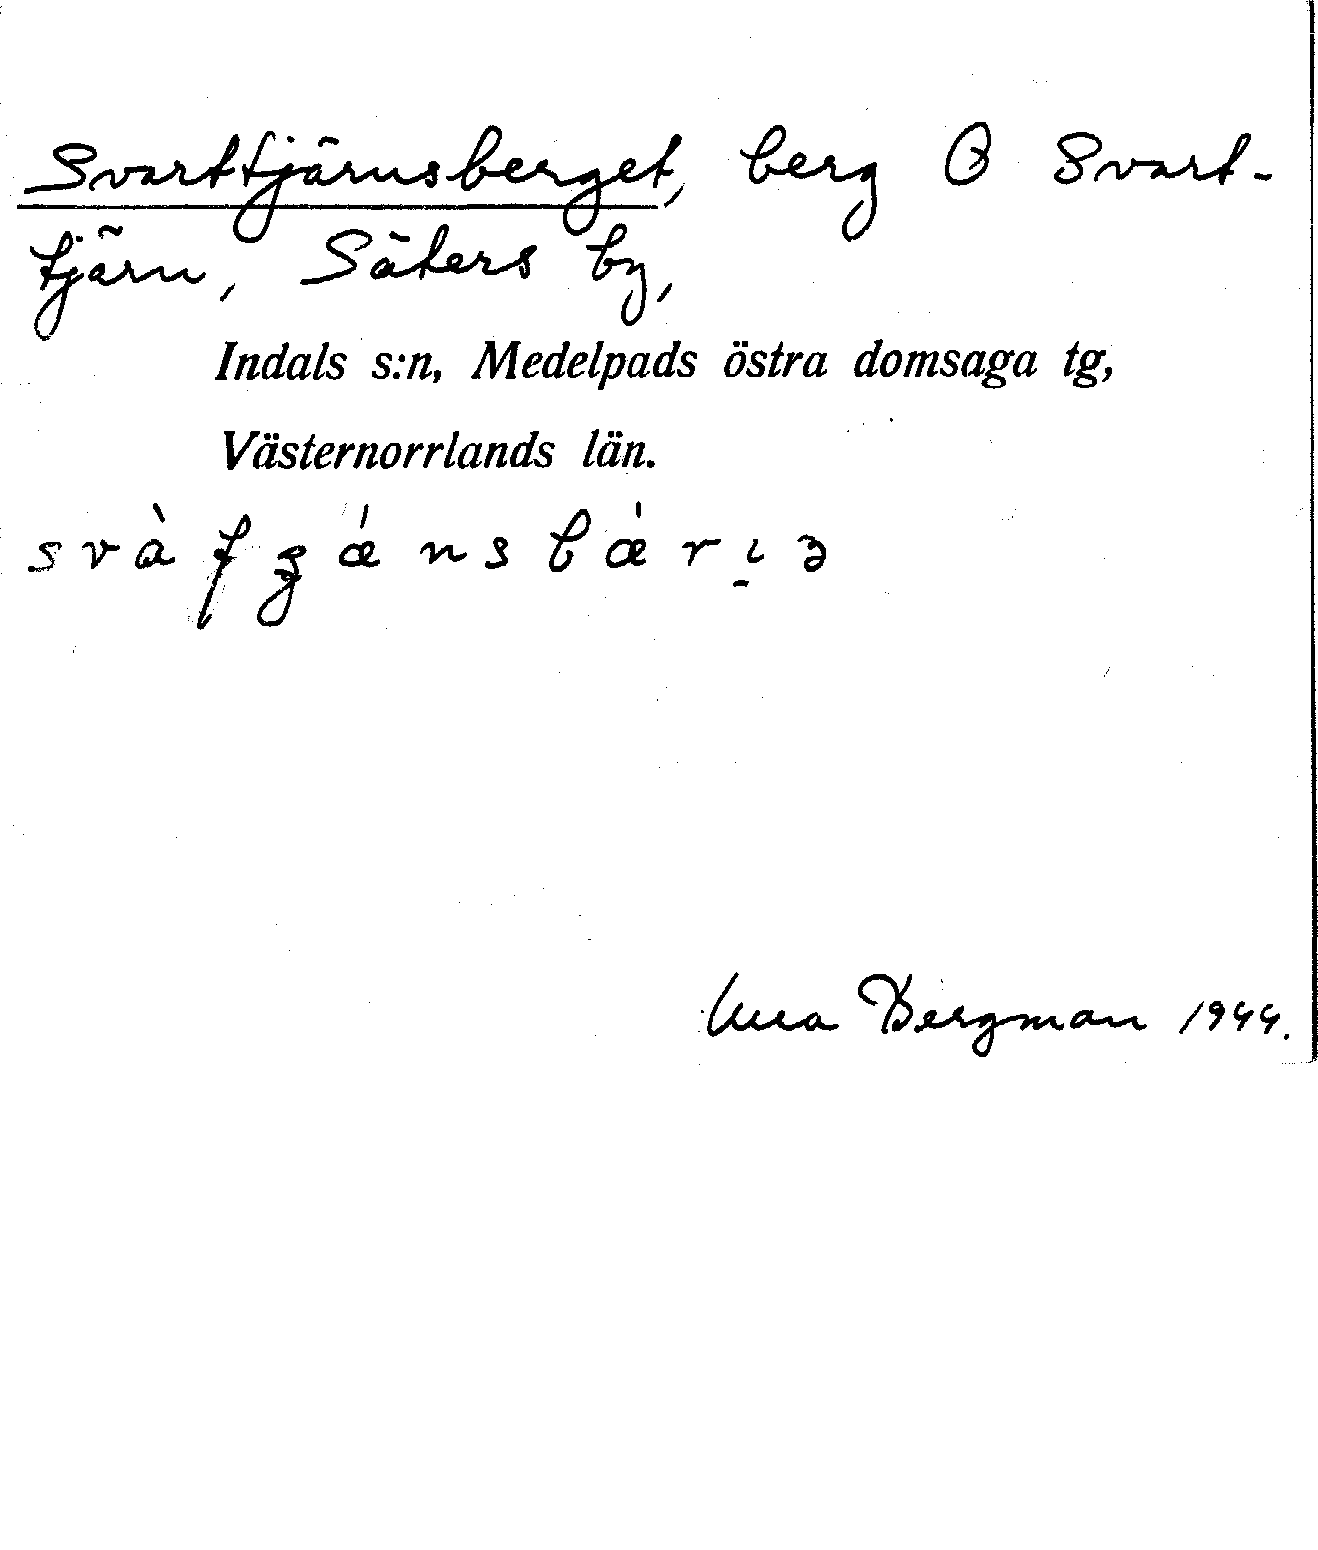 Svarttjärnsberget, berg Ö Svart-
tjärn, Säters by,
Indals s:n, Medelpads östra domsaga tg,
Västernorrlands län.
Bergman 1944.